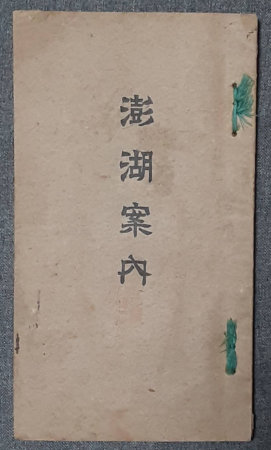 澎湖案內